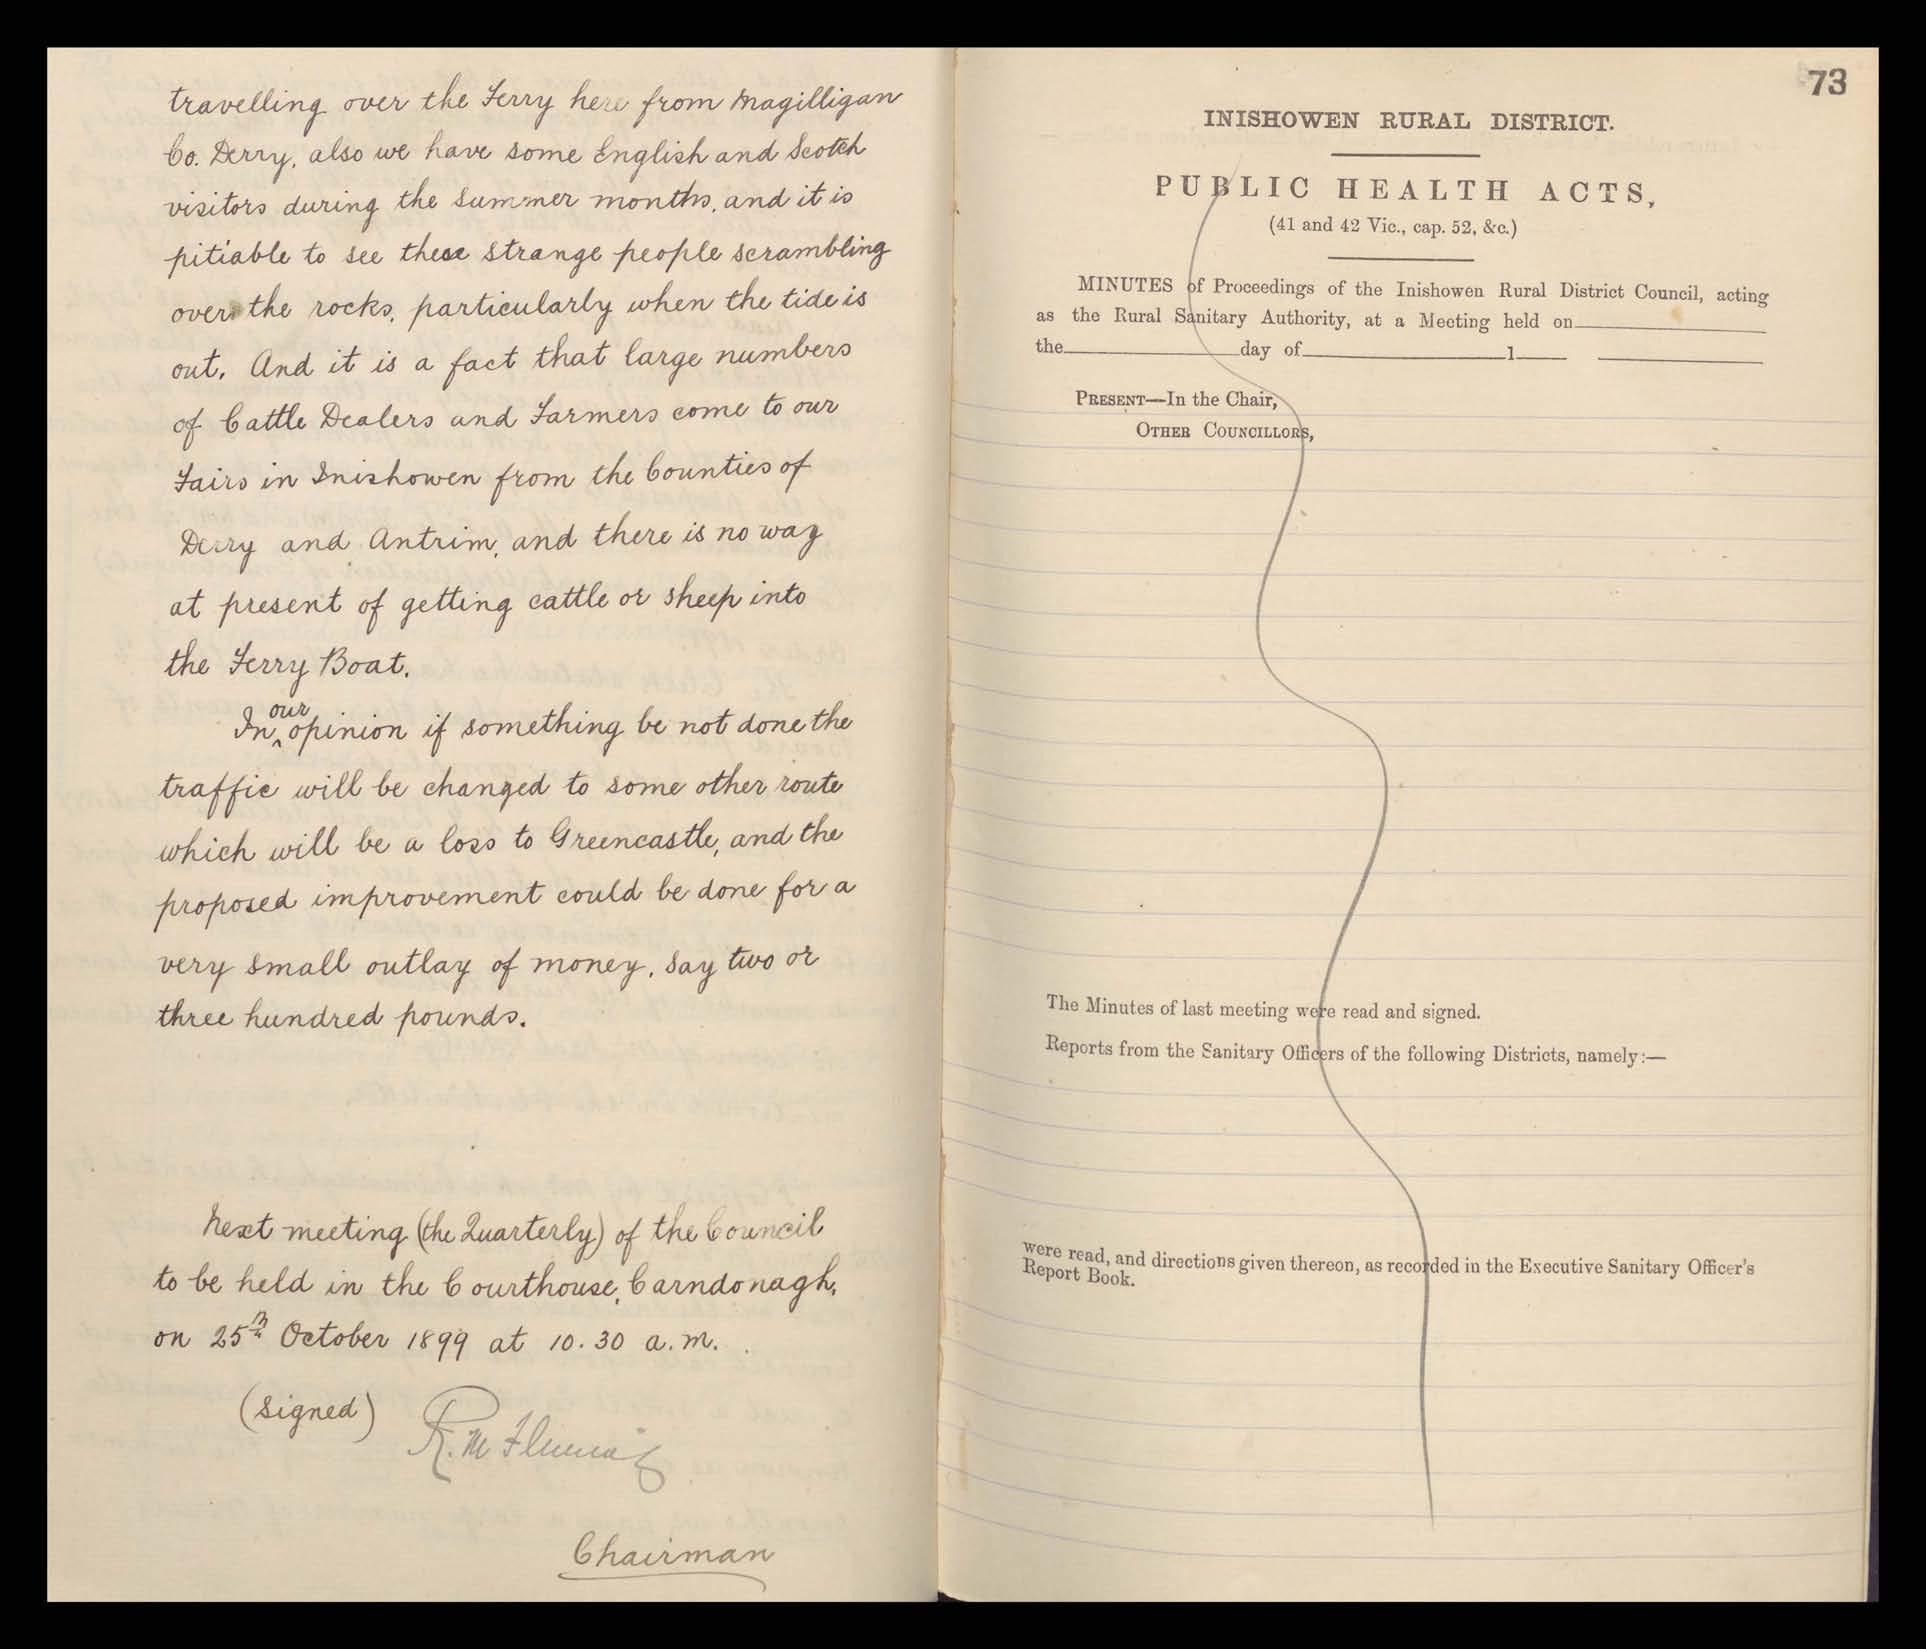 travelling over the Ferry here from Magilligan
Co. Derry, also we have some English and Scotch
visitors during the summer months, and it is
pitiable to see these strange people scrambling
over the rocks, particularly when the tide is
out. And it is a fact that large numbers
of Cattle Dealers and Farmers come to our
Fairs in Inishowen from the Counties of
Derry and Antrim, and there is no way
at present of getting cattle or sheep into
the Ferry Boat.
In our opinion if something be not done the
traffic will be changed to some other route
which will be a loss to Greencastle, and the
proposed improvement could be done for a
very small outlay of money, say two or
three hundred pounds.
Next meeting (the Quarterly) of the Council
to be held in the Courthouse, Carndonagh,
on 25th October 1899 at 10.30 a.m.
(signed) R. M Fleming
Chairman
73
INISHOWEN RURAL DISTRICT.
PUBLIC HEALTH ACTS,
(41 and 42 Vic., cap. 52, &c.)
MINUTES of Proceedings of the Inishowen Rural District Council, acting
as the Rural Sanitary Authority, at a Meeting held on
the day of 1
PRESENT—In the Chair,
OTHER COUNCILLORS,
The Minutes of last meeting were read and signed.
Reports from the Sanitary Officers of the following Districts, namely:—
were read, and directions given thereon, as recorded in the Executive Sanitary Officer's
Report Book.